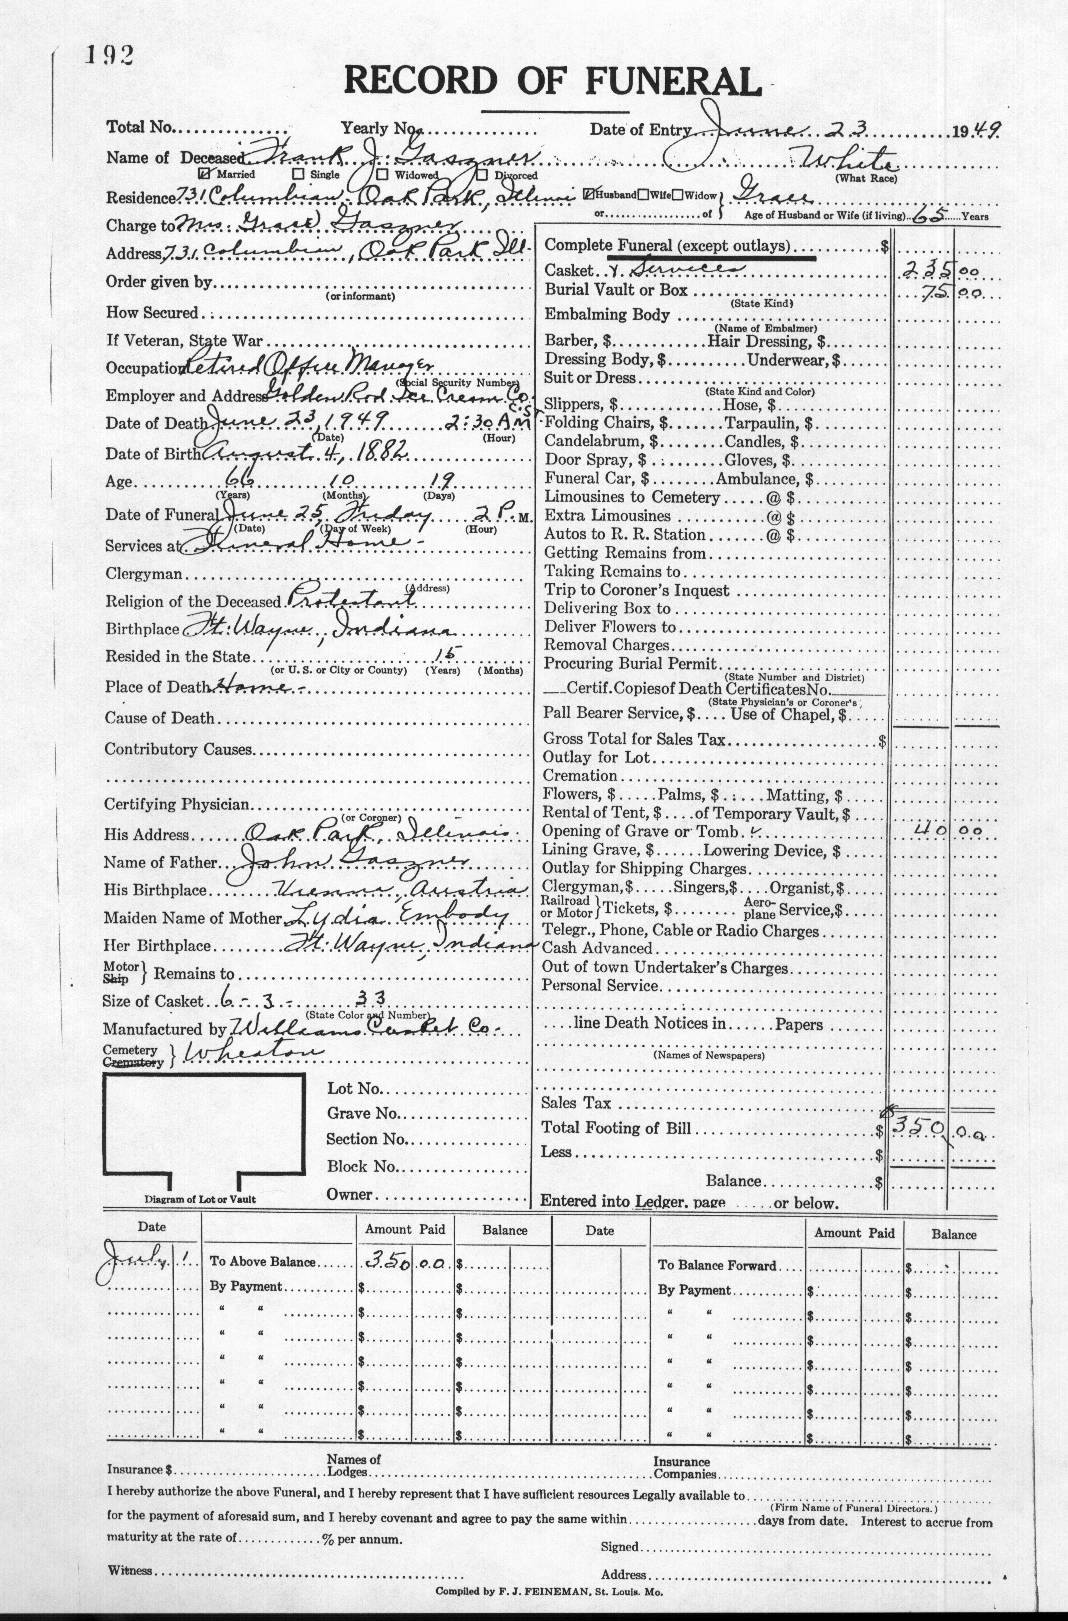 192
RECORD OF FUNERAL
Total No. Yearly No. Date of Entry June 23 1949
Name of Deceased Frank J. Gaszner White
☑ Married ☐ Single ☐ Widowed ☐ Divorced (What Race)
Residence 731 Columbian, Oak Park, Illinois ☑ Husband ☐ Wife ☐ Widow } Grace
or of } Age of Husband or Wife (if living) 65 Years
Charge to Mrs. Grace Gaszner
Address 731 Columbian, Oak Park Ill.
Order given by
(or informant)
How Secured
If Veteran, State War
Occupation Retired Office Manager
(Social Security Number)
Employer and Address Golden Rod Ice Cream Co.
Date of Death June 23, 1949 2:30 AM C.S.T.
(Date) (Hour)
Date of Birth August 4, 1882
Age 66 10 19
(Years) (Months) (Days)
Date of Funeral June 25, Friday 2 P. M.
(Date) (Day of Week) (Hour)
Services at Funeral Home -
Clergyman
(Address)
Religion of the Deceased Protestant
Birthplace Ft. Wayne, Indiana
Resided in the State 15
(or U. S. or City or County) (Years) (Months)
Place of Death Home -
Cause of Death
Contributory Causes
Certifying Physician
(or Coroner)
His Address Oak Park, Illinois
Name of Father John Gaszner
His Birthplace Vienna, Austria
Maiden Name of Mother Lydia Embody
Her Birthplace Ft. Wayne, Indiana
Motor Ship } Remains to
Size of Casket 6 - 3 - 33
(State Color and Number)
Manufactured by Williams Casket Co -
Cemetery Crematory } Wheaton
Lot No.
Grave No.
Section No.
Block No.
Owner
Diagram of Lot or Vault
Complete Funeral (except outlays) $
Casket & Services 235 00
Burial Vault or Box 75 00
(State Kind)
Embalming Body
(Name of Embalmer)
Barber, $ Hair Dressing, $
Dressing Body, $ Underwear, $
Suit or Dress
(State Kind and Color)
Slippers, $ Hose, $
Folding Chairs, $ Tarpaulin, $
Candelabrum, $ Candles, $
Door Spray, $ Gloves, $
Funeral Car, $ Ambulance, $
Limousines to Cemetery @ $
Extra Limousines @ $
Autos to R. R. Station @ $
Getting Remains from
Taking Remains to
Trip to Coroner's Inquest
Delivering Box to
Deliver Flowers to
Removal Charges
Procuring Burial Permit
(State Number and District)
Certif. Copies of Death Certificates No.
(State Physician's or Coroner's
Pall Bearer Service, $ Use of Chapel, $
Gross Total for Sales Tax $
Outlay for Lot
Cremation
Flowers, $ Palms, $ Matting, $
Rental of Tent, $ of Temporary Vault, $
Opening of Grave or Tomb ✓ 40 00
Lining Grave, $ Lowering Device, $
Outlay for Shipping Charges
Clergyman, $ Singers, $ Organist, $
Railroad or Motor } Tickets, $ Aero-plane Service, $
Telegr., Phone, Cable or Radio Charges
Cash Advanced
Out of town Undertaker's Charges
Personal Service
line Death Notices in Papers
(Names of Newspapers)
Sales Tax
Total Footing of Bill $ 350 00
Less $
Balance $
Entered into Ledger, page or below.
Date Amount Paid Balance Date Amount Paid Balance
July 1 To Above Balance 350 00 $ To Balance Forward $
By Payment $ $ By Payment $ $
" " $ $ " " $ $
" " $ $ " " $ $
" " $ $ " " $ $
" " $ $ " " $ $
" " $ $ " " $ $
" " $ $ " " $ $
Insurance $ Names of Lodges Insurance Companies
I hereby authorize the above Funeral, and I hereby represent that I have sufficient resources Legally available to
(Firm Name of Funeral Directors.)
for the payment of aforesaid sum, and I hereby covenant and agree to pay the same within days from date. Interest to accrue from
maturity at the rate of % per annum.
Signed
Witness Address
Compiled by F. J. FEINEMAN, St. Louis. Mo.